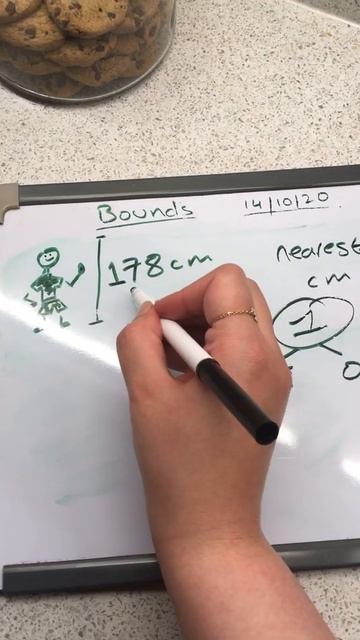 Bounds
14/10/20
178cm
nearest
cm
1
0